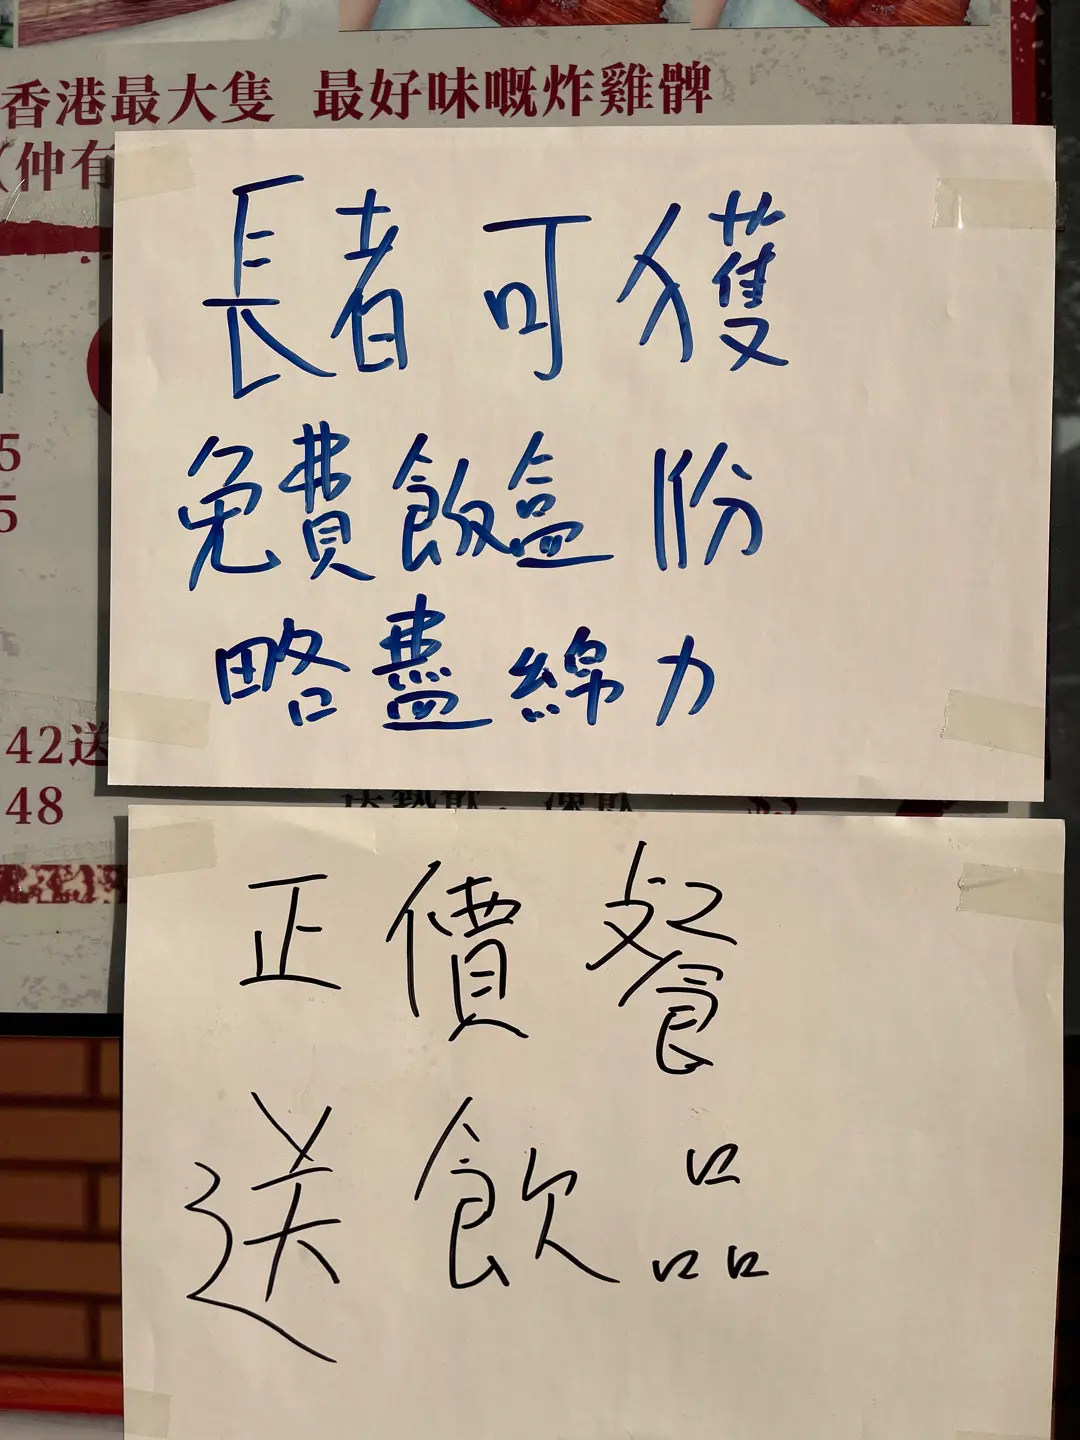 香港最大隻 最好味嘅炸雞髀
(仲有
長者可獲
5
免費飯盒1份
5
略盡綿力
42送
48
正價餐
送飲品